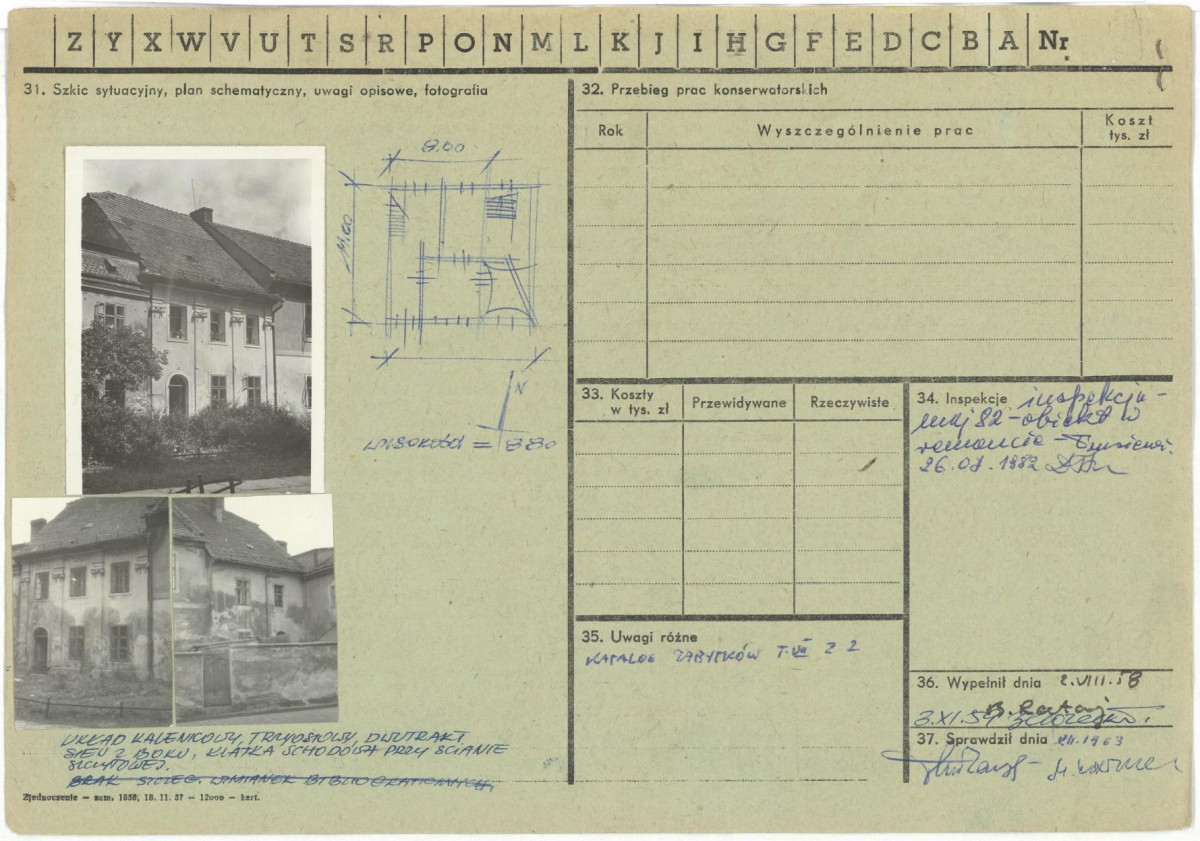 Z Y X W V U T S R P O N M L K J I H G F E D C B A Nr
31. Szkic sytuacyjny, plan schematyczny, uwagi opisowe, fotografia
8.00
11.00
N
WYSOKOŚĆ = 8.80
UKŁAD KALENICOWY, TRZYOSIOWY, DWUTRAKT.
SIEŃ Z BOKU, KLATKA SCHODOWA PRZY ŚCIANIE
SZCZYTOWEJ.
BRAK SZCZEG. WZMIANEK BIBLIOGRAFICZNYCH.
Zjednoczenie — zam. 1858, 18. 11. 57 — 12000 — kart.
32. Przebieg prac konserwatorskich
Rok
Wyszczególnienie prac
Koszt
tys. zł
33. Koszty
w tys. zł
Przewidywane
Rzeczywiste
34. Inspekcje inspekcja
82 - obiekt w
remoncie
26.08.1982
35. Uwagi różne
KATALOG ZABYTKÓW T. VII Z 2
36. Wypełnił dnia 2.VIII.58
B. Rataj
3.XI.59
37. Sprawdził dnia XII.1963